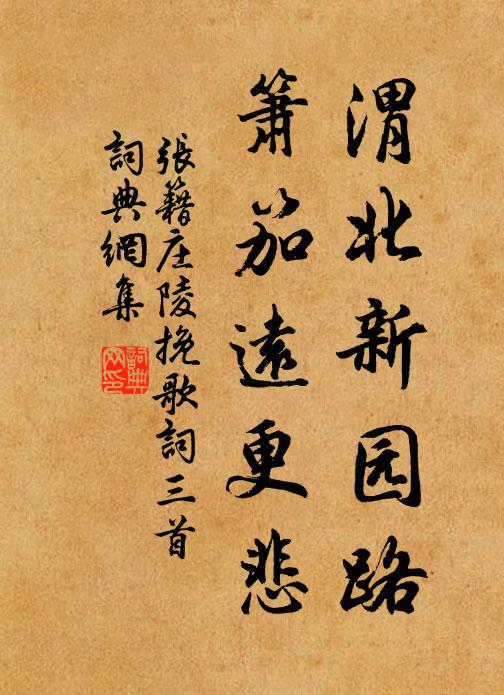 渭北新园路
簫笳遠更悲
張籍庄陵挽歌詞三首
詞典網集
詞典网印